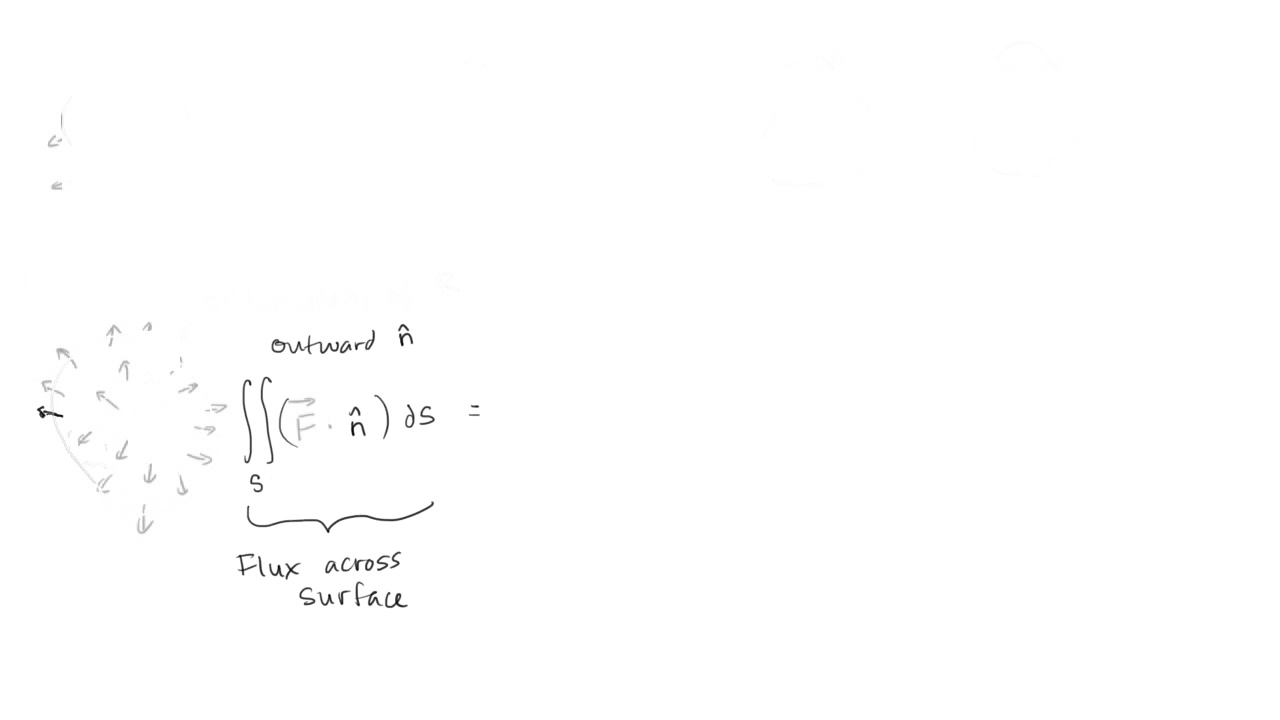 outward n̂
∬(F⃗ · n̂) dS =
S
Flux across
surface